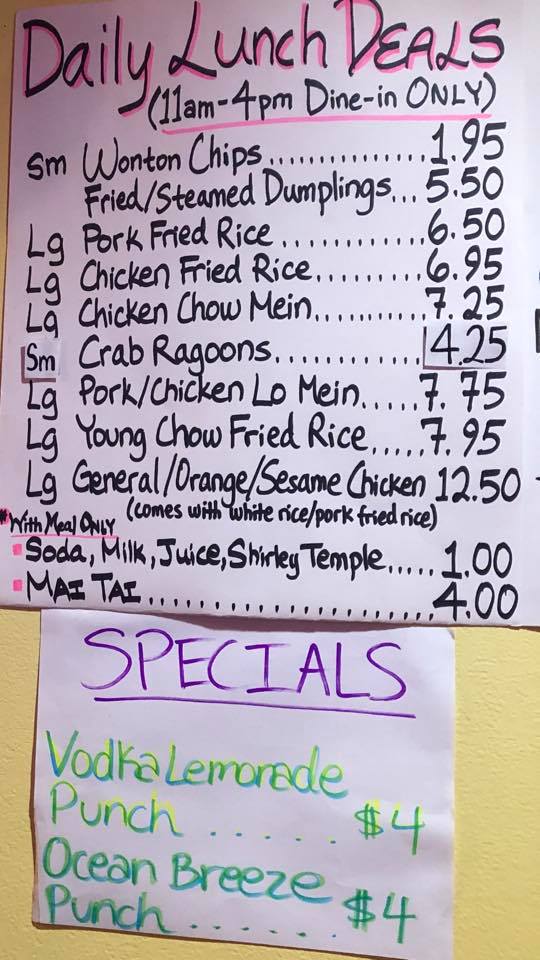 Daily Lunch DEALS
(11am-4pm Dine-in ONLY)
Sm Wonton Chips..............1.95
Fried/Steamed Dumplings...5.50
Lg Pork Fried Rice............6.50
Lg Chicken Fried Rice.........6.95
Lg Chicken Chow Mein..........7.25
Sm Crab Ragoons............4.25
Lg Pork/Chicken Lo Mein.....7.75
Lg Young Chow Fried Rice.....7.95
Lg General/Orange/Sesame Chicken 12.50
(comes with white rice/pork fried rice)
*With Meal ONLY
Soda, Milk, Juice, Shirley Temple.....1.00
MAI TAI.....................4.00
SPECIALS
Vodka Lemonade
Punch ...... $4
Ocean Breeze
Punch...... $4